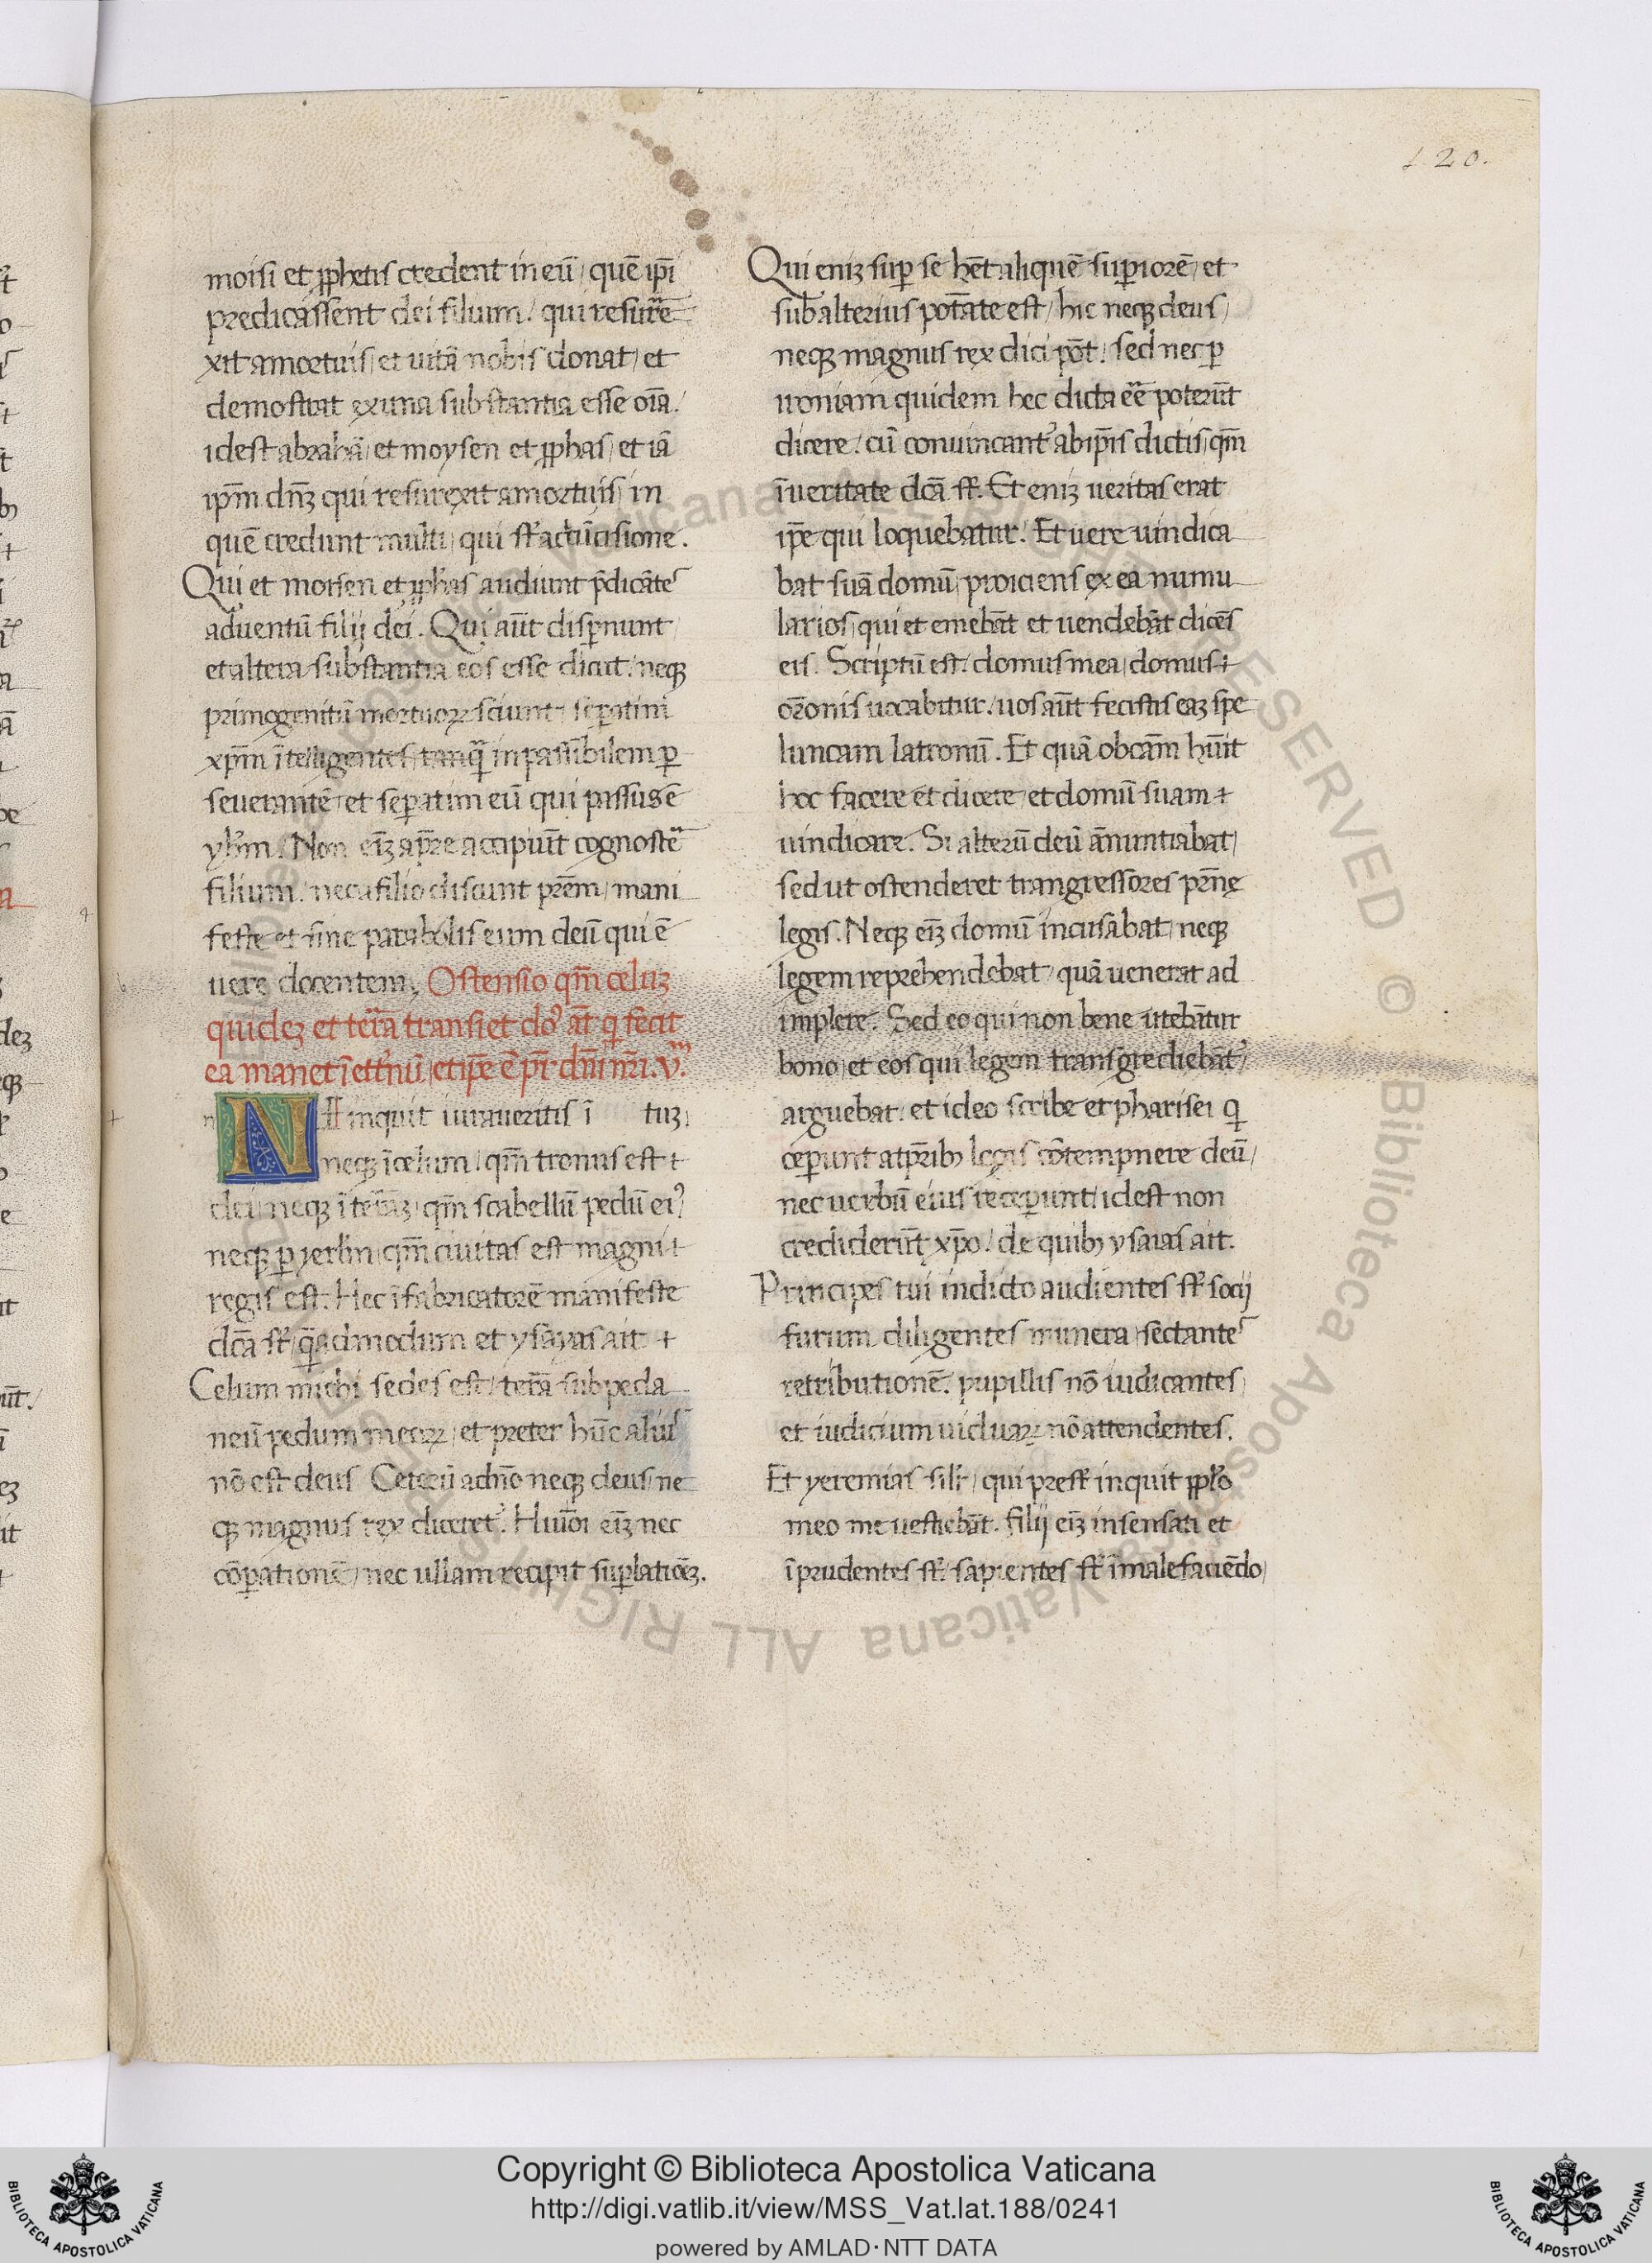 120.
moisi et ꝓphetis credent in eū / quē ip̄i
predicassent dei filium / qui resurre
xit a mortuis / et uitā nobis donat / et
demostrat ex una substantia esse oīa /
id est abrahā / et moysen et ꝓphas / et iā
ip̄m dn̄ꝫ qui resurexit a mortuis / in
quē credunt multi / qui sт̄ a ctūcisione .
Qui et moisen et ꝓphas audiunt p̄dicātes
aduentū filij dei . Qui aūt disꝑnunt
et altera substantia eos esse dicūt / neqꝫ
primogenitū mortuoꝝ sciunt / seꝑatim
xp̄m ītelligentes / tanꝗ̄ inpassibilem ꝑ
seuerantē / et seꝑatim eū qui passus ē
yhm̄ . Non eīꝫ a pr̄e accipiūt cognoscē
filium / nec a filio discunt pr̄em / mani
feste et sine parabolis eum deū qui ē
uere docentem . Ostensio qm̄ celuꝫ
quideꝫ et terrā transiet do᷒ at̄ q fecit
ea manet ī etr̄nū / et ip̄e ē pr̄ dn̄i nr̄i . v.m
inquit iuraueritis ī tuꝫ /
neqꝫ ī celum / qm̄ tronus est +
dei / neqꝫ ī terrāꝫ / qm̄ scabellū pedū ei᷒
neqꝫ ꝑ yerlm̄ / qm̄ ciuitas est magni +
regis est . Hec ī fabricatorē manifeste
dcā st̄ / quēadmodum et ysayas ait +
Celum michi sedes est / terrā subpeda
neū pedum meoꝝ / et preter hūc alius
nō est deus Ceterū ad nō neqꝫ deus / ne
qꝫ magnus rex diceret᷒ . Huiōi eīꝫ nec
cōꝑationē / nec ullam recipit suꝑlatiōeꝫ .
Qui eniꝫ suꝑ se hēt aliquē suꝑiorē / et
sub alterius pot̄ate est / hic neqꝫ deus /
neqꝫ magnus rex dici pōt / sed nec ꝑ
ironiam quidem hec dicta eē poterūt
dicere / cū conuincant᷒ ab ip̄is dictis / qm̄
ī ueritate dcā st̄ . Et eniꝫ ueritas erat
ip̄e qui loquebatur / Et uere uindica
bat suā domū / proiciens ex ea numu
larios / qui et emebāt et uendebāt dicēs
eis . Scriptū est / domus mea / domus +
or̄onis uocabitur / uos aūt fecistis eaꝫ spe
luncam latronū . Et quā ob cām hūit
hoc facere et dicere / et domū suam +
uindicare . Si alterū deū ānuntiabat /
sed ut ostenderet trangressores pr̄nę
legis . Neqꝫ eīꝫ domū incusabat / neqꝫ
legem reprehendebat / quā uenerat ad
implere . Sed eo qui non bene utebātur
bono / et eos qui legem transgrediebāt᷒
arguebat / et ideo scribe et pharisei q
ceꝑunt a tꝑribꝫ legis cōtempnere deū /
nec uerbū eius receꝑunt / id est non
crediderūt xp̄o / de quibꝫ ysaias ait .
Principes tui indicto audientes st̄ socij
furum diligentes munera / sectantes
retributionē . pupillis nō iudicantes /
et iudicium uiduaꝝ nō attendentes .
Et yeremias silr̄ / qui presт̄ inquit ꝓplo
meo me nesciebāt . filij eīꝫ insensati et
īprudentes st̄ / sapientes st̄ ī malefaciēdo /
Copyright © Biblioteca Apostolica Vaticana
http://digi.vatlib.it/view/MSS_Vat.lat.188/0241
powered by AMLAD·NTT DATA
BIBLIOTECA APOSTOLICA VATICANA
BIBLIOTECA APOSTOLICA VATICANA